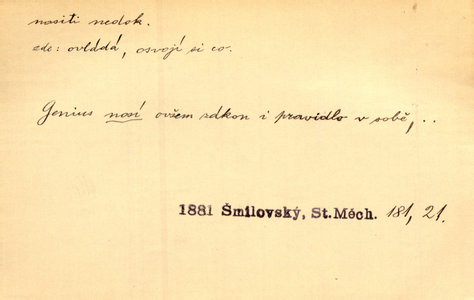 nositi nedok.
zde: ovládá, osvojí si co.
Genius nosí ovšem zákon i pravidlo v sobě, ..
1881 Šmilovský, St.Měch. 181, 21.